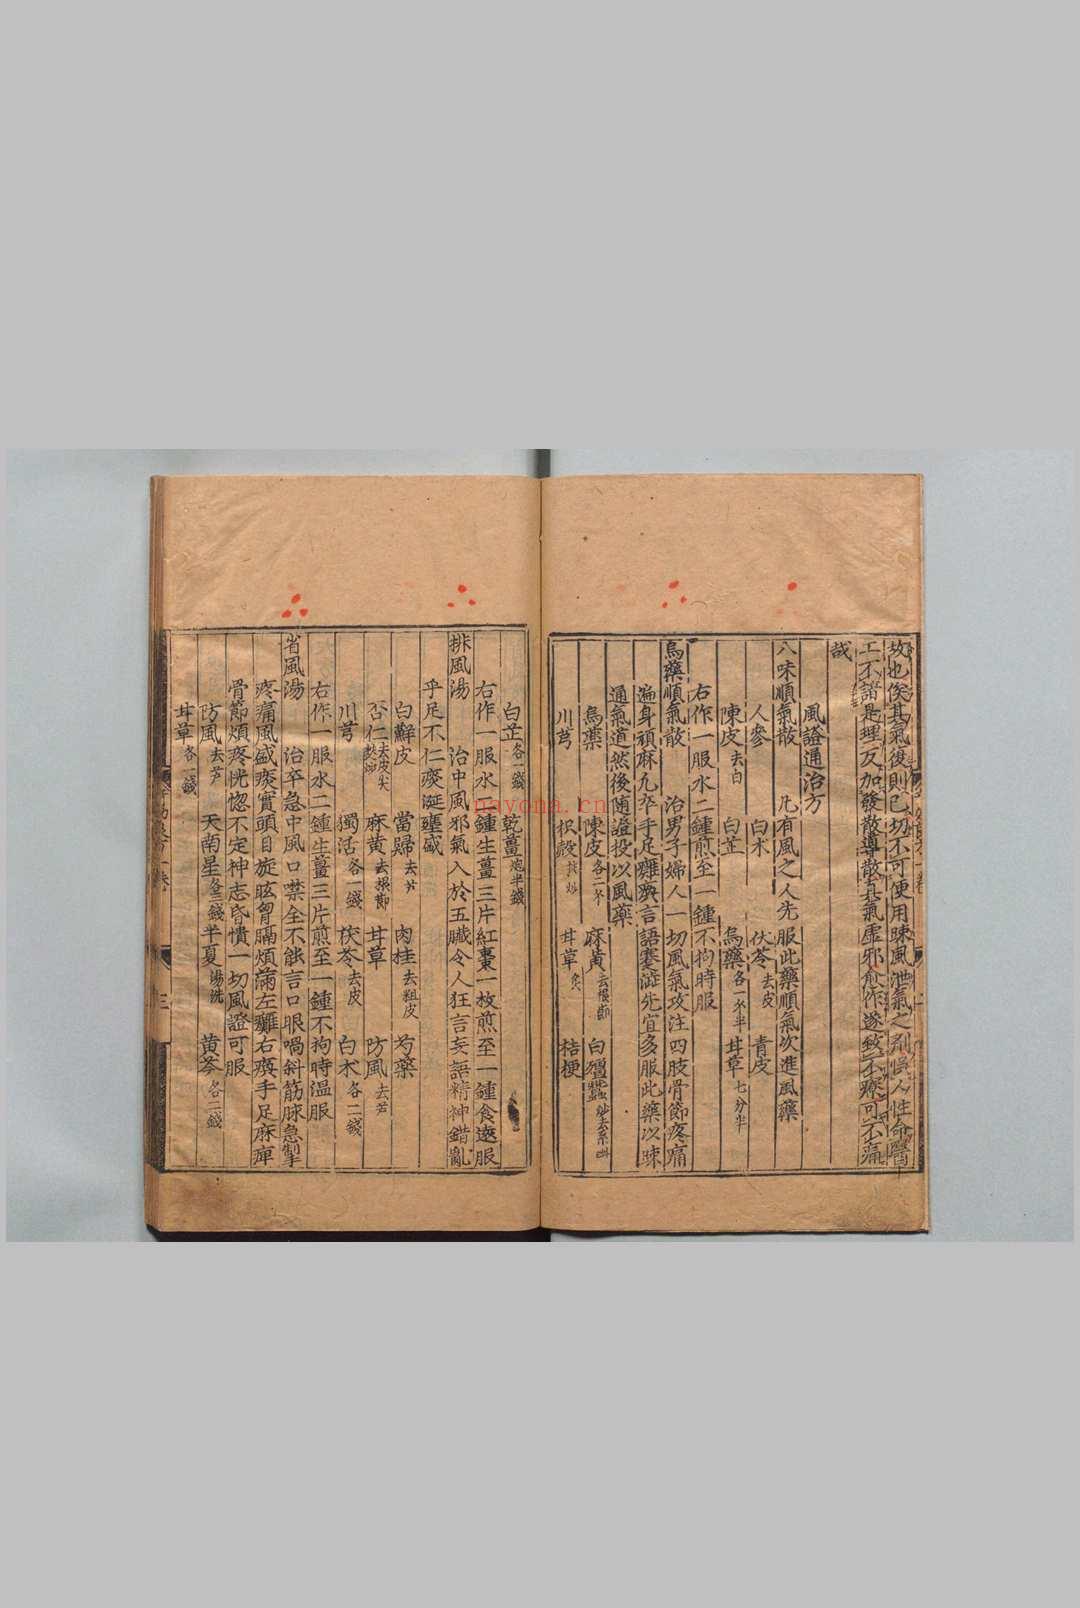 故也俟其氣復則已切不可便用踈風泄氣之劑悮人性命醫
工不諳是理反加發散導散真氣虛邪愈作遂致不療可不痛
哉
風證通治方
八味順氣散 凡有風之人先服此藥順氣次進風藥
人參 白术 伏苓去皮 青皮
陳皮去白 白芷 烏藥各一分半 甘草七分半
右作一服水二鍾煎至一鍾不拘時服
烏藥順氣散 治男子婦人一切風氣攻注四肢骨節疼痛
遍身頑麻凡卒手足癱瘓言語蹇澁先宜多服此藥以踈
通氣道然後隨證投以風藥
烏藥 陳皮各二分 麻黄去根節 白殭蠶
川芎 枳殼 甘草炙 桔梗
白芷各一錢 乾薑炮半錢
右作一服水二鍾生薑三片紅棗一枚煎至一鍾食遠服
排風湯 治中風邪氣入於五臟令人狂言妄語精神錯亂
手足不仁痰涎壅盛
白蘚皮 當歸去芦 肉桂去粗皮 芍藥
杏仁去皮尖麩炒 麻黄去根節 甘草 防風去芦
川芎 獨活各一錢 茯苓去皮 白术各二錢
右作一服水二鍾生薑三片煎至一鍾不拘時温服
省風湯 治卒急中風口噤全不能言口眼喎斜筋脉急掣
疼痛風盛痰實頭目旋眩胷膈煩滿左癱右瘓手足麻痺
骨節煩疼恍惚不定神志昏憒一切風證可服
防風去芦 天南星各三錢 半夏湯洗 黄芩各二錢
甘草各一錢
nayona.cn